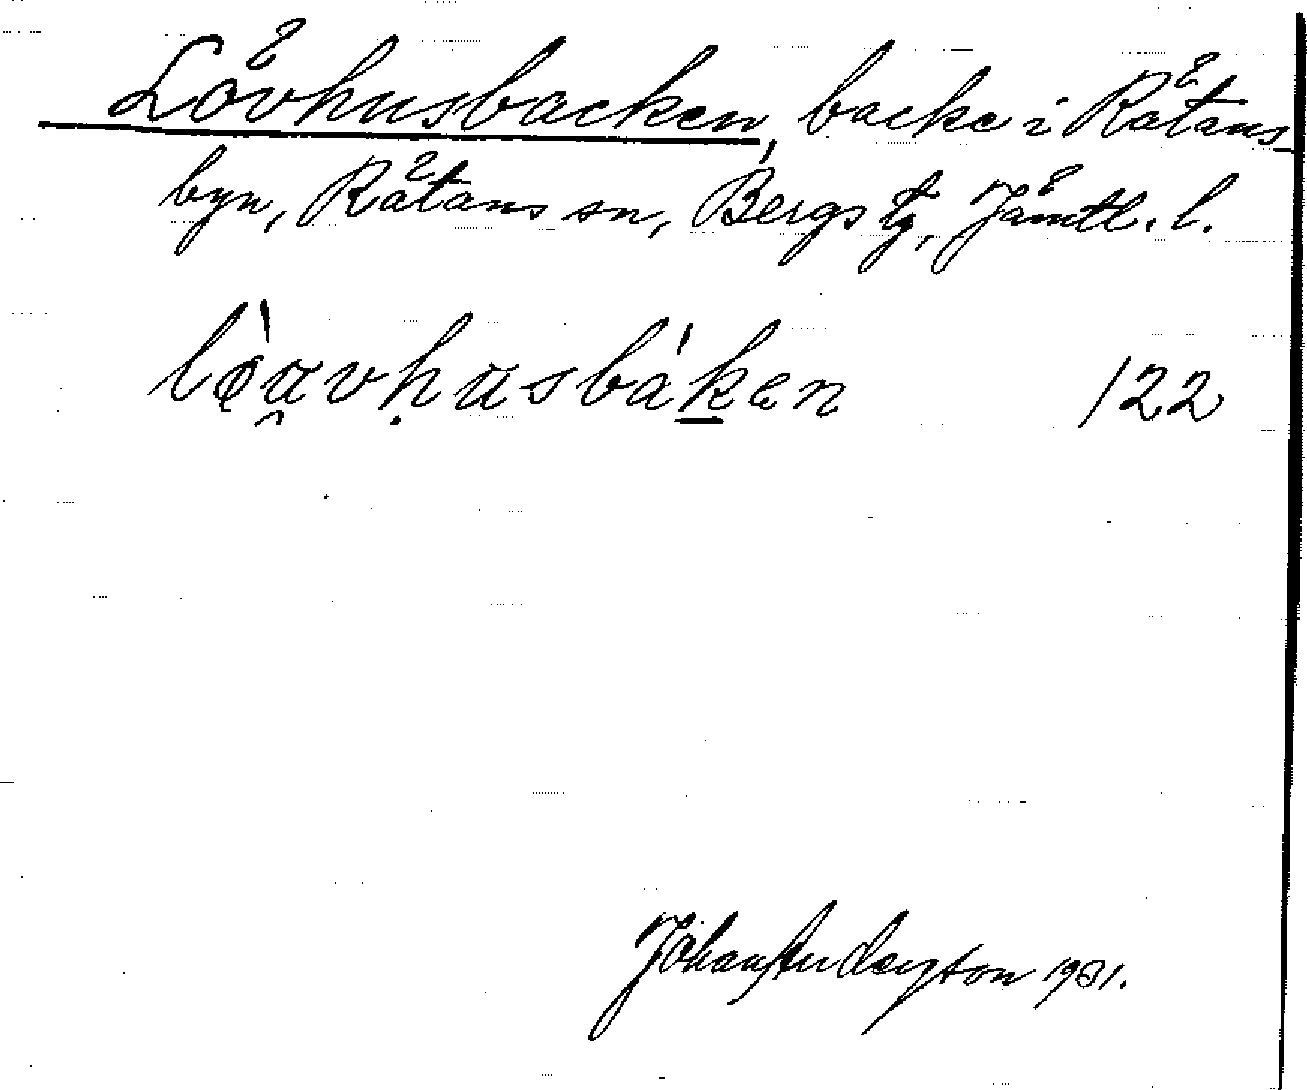 Lövhusbacken, backe i Rätans-
byn, Rätans sn, Bergs tg, Jämtl. l.
122
Johan Anderson 1931.